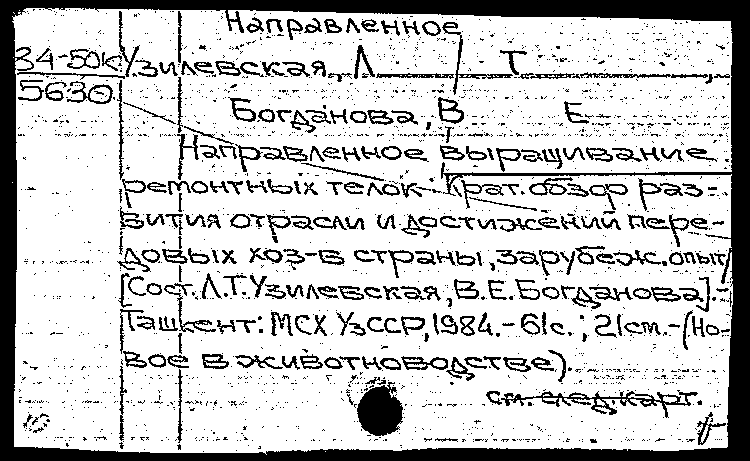 Направленное
34-50к Узилевская, Л Т
5630
Богданова, В Е
Направленное выращивание
ремонтных телок: Крат. обзор раз-
вития отрасли и достижений пере-
довых хоз-в страны, зарубеж. опыт/
[Сост. Л.Т.Узилевская, В.Е.Богданова].-
Ташкент: МСХ УзССР, 1984.-61с.; 21см.-(Но-
вое в животноводстве).
см. след. карт.